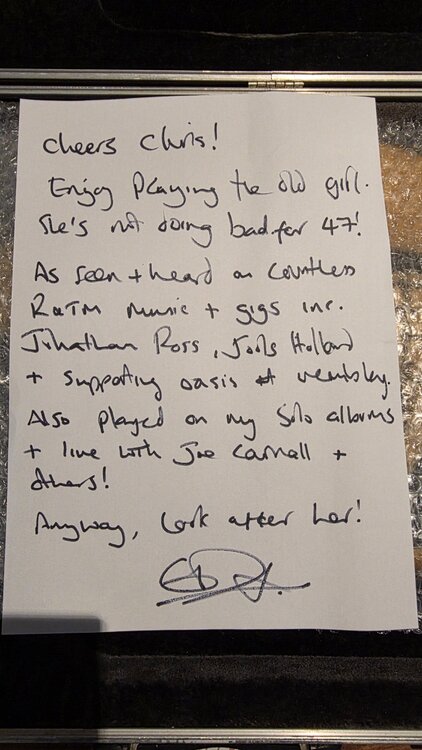 Cheers Chris!
Enjoy Playing the old girl.
She's not doing bad for 47!
As seen + heard on countless
R&TM music + gigs inc.
Jonathan Ross, Jools Holland
+ supporting oasis at wembley.
Also played on my solo albums
+ live with Joe Carnall +
others!
Anyway, look after her!